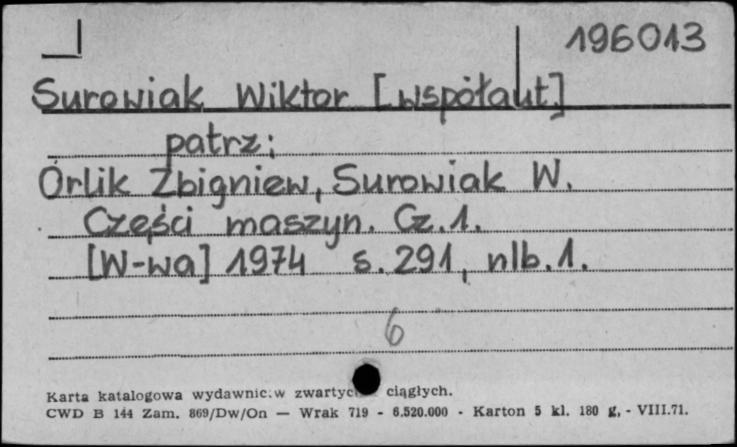 196013
Surowiak Wiktor [współaut]
patrz:
Orlik Zbigniew, Surowiak W.
Części maszyn. Cz.1.
[W-wa] 1974 s. 291, nlb.1.
6
Karta katalogowa wydawnic.w ciągłych.
CWD B 144 Zam. 869/Dw/On — Wrak 719 - 6.520.000 - Karton 5 kl. 180 g, - VIII.71.